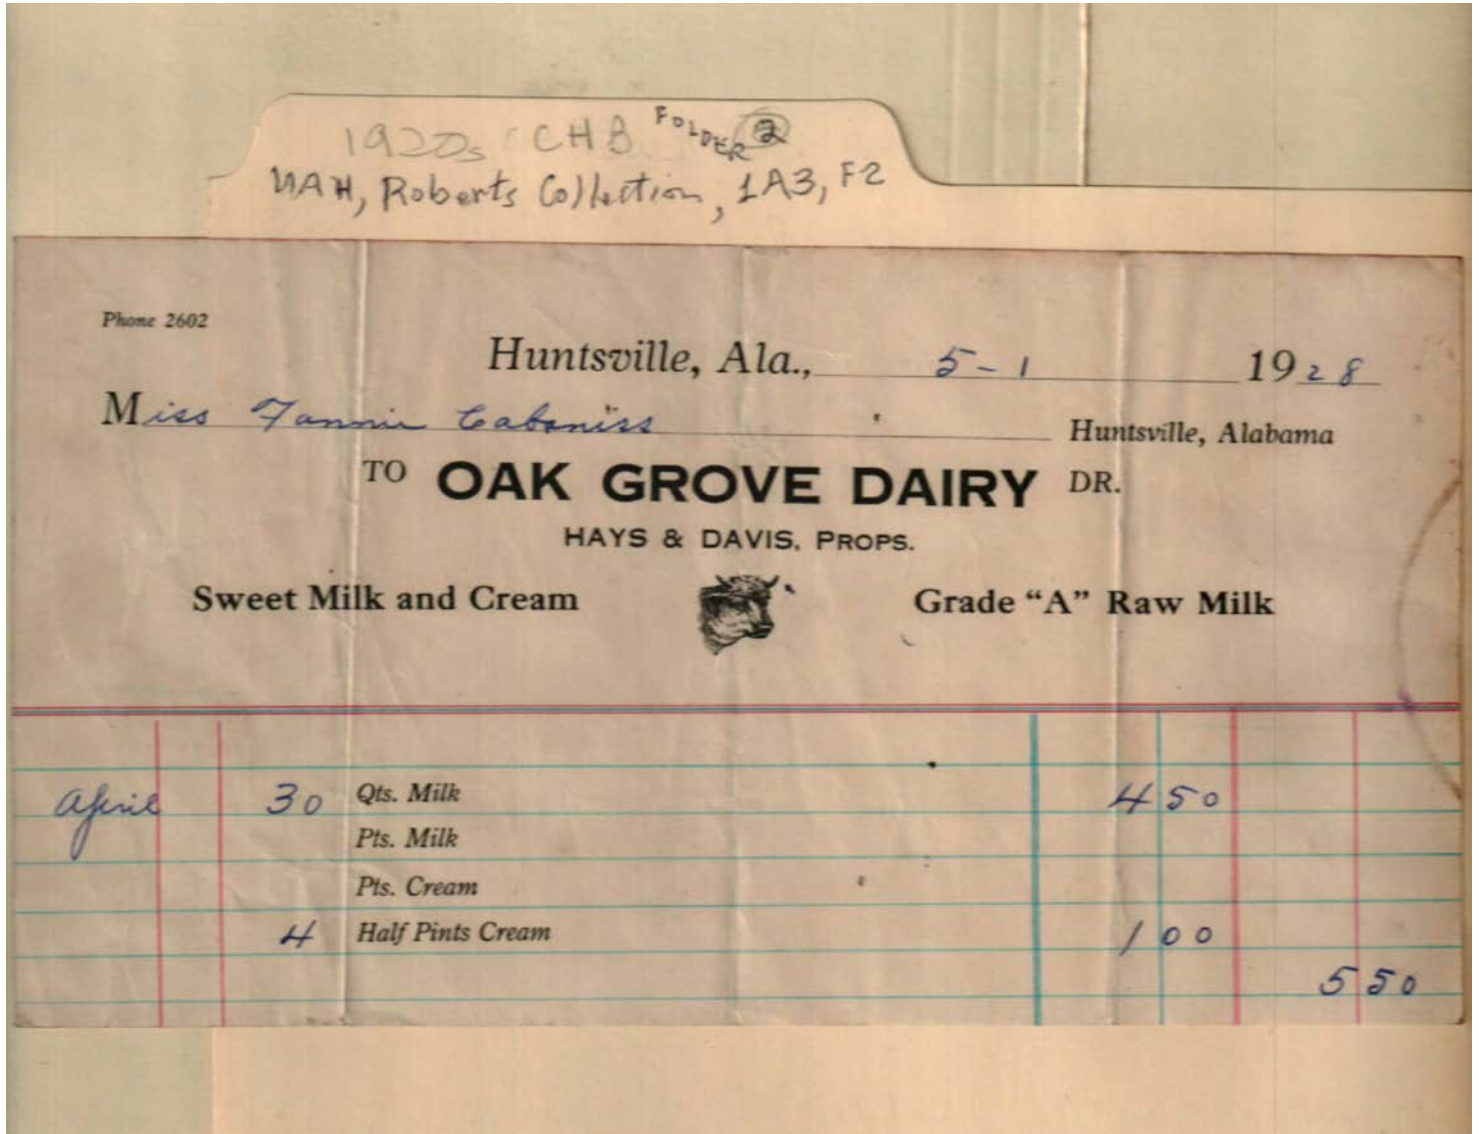 1920s CHB FOLDER 2
UAH, Roberts Collection, 1A3, F2
Phone 2602
Huntsville, Ala., 5-1 1928
Miss Fannie Cabaniss Huntsville, Alabama
TO OAK GROVE DAIRY DR.
HAYS & DAVIS, PROPS.
Sweet Milk and Cream Grade "A" Raw Milk
April 30 Qts. Milk 4 50
Pts. Milk
Pts. Cream
4 Half Pints Cream 1 00
5 50